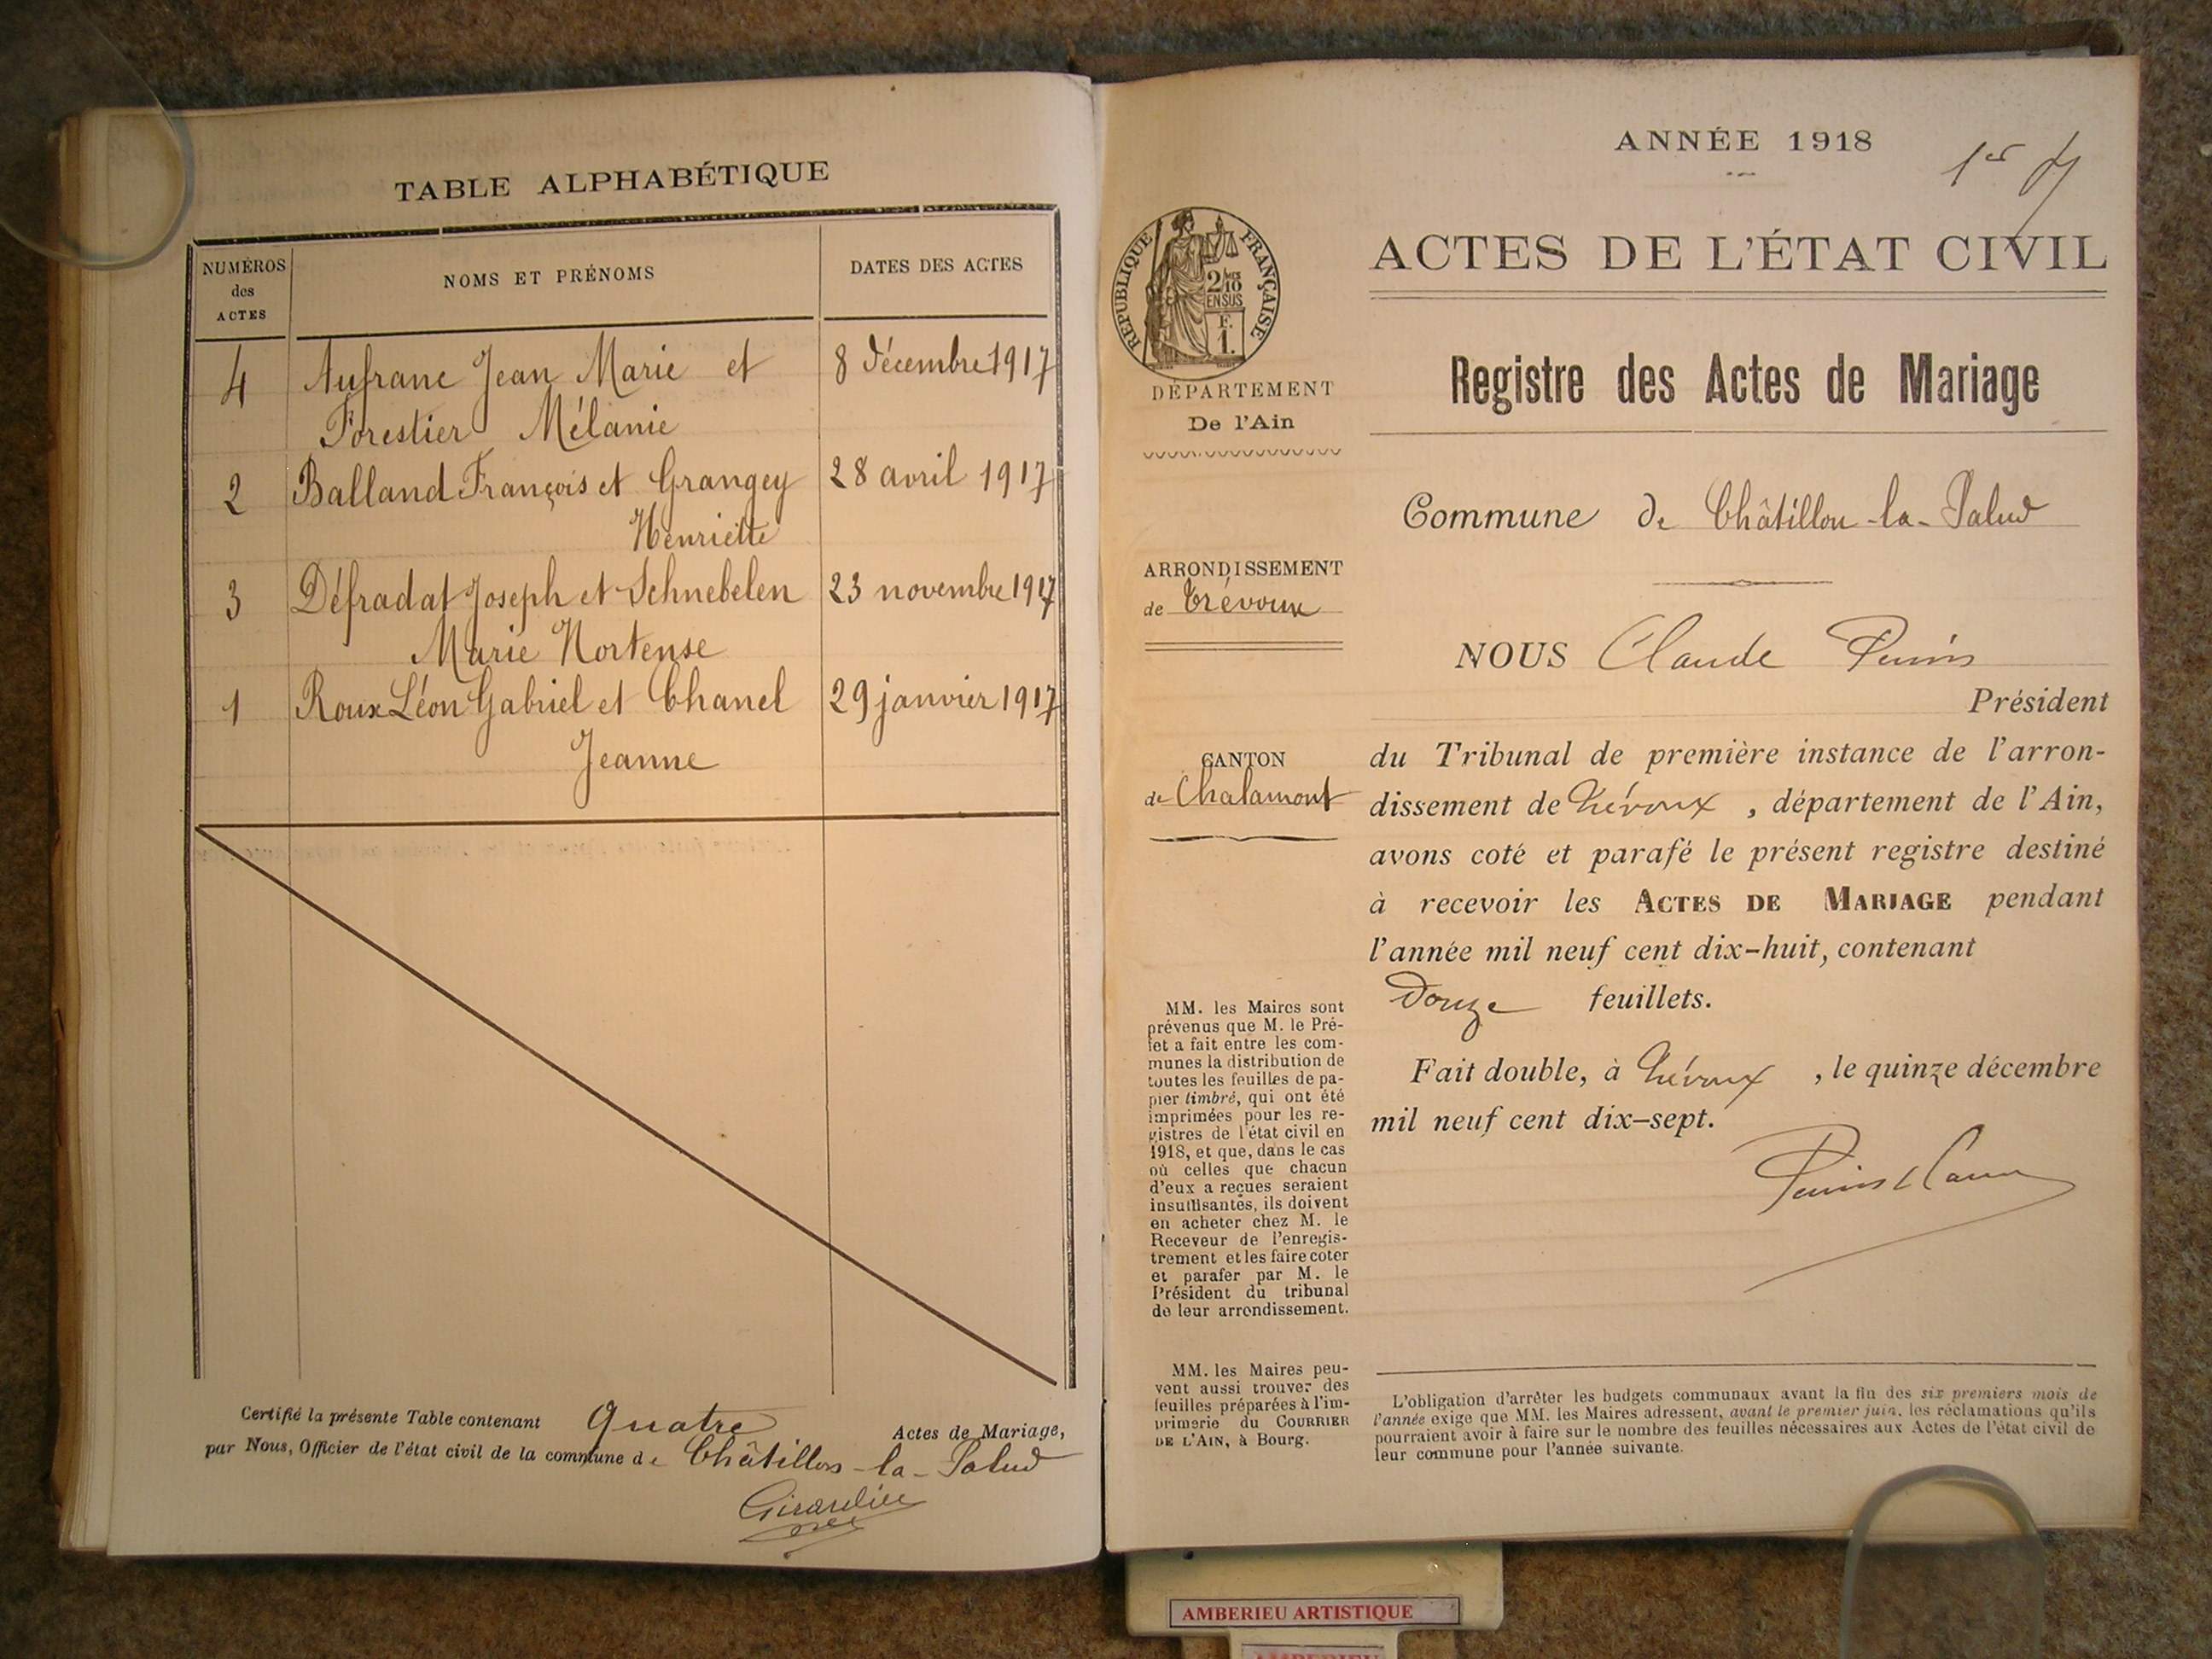 TABLE ALPHABÉTIQUE
NUMÉROS
des
ACTES
NOMS ET PRÉNOMS
DATES DES ACTES
4 Aufranc Jean Marie et 8 décembre 1917
Forestier Mélanie
2 Balland François et Grangey 28 avril 1917
Henriette
3 Défradat Joseph et Schnebelen 23 novembre 1917
Marie Hortense
1 Roux Léon Gabriel et Chanel 29 janvier 1917
Jeanne
Certifié la présente Table contenant Quatre Actes de Mariage,
par Nous, Officier de l'état civil de la commune de Châtillon-la-Palud
ANNÉE 1918
1er
RÉPUBLIQUE FRANÇAISE
2/10
EN SUS
F.
1.
DÉPARTEMENT
De l'Ain
ARRONDISSEMENT
de Trévoux
CANTON
de Chalamont
MM. les Maires sont
prévenus que M. le Pré-
fet a fait entre les com-
munes la distribution de
toutes les feuilles de pa-
pier timbré, qui ont été
imprimées pour les re-
gistres de l'état civil en
1918, et que, dans le cas
où celles que chacun
d'eux a reçues seraient
insuffisantes, ils doivent
en acheter chez M. le
Receveur de l'enregis-
trement et les faire coter
et parafer par M. le
Président du tribunal
de leur arrondissement.
MM. les Maires peu-
vent aussi trouver des
feuilles préparées à l'im-
primerie du COURRIER
DE L'AIN, à Bourg.
ACTES DE L'ÉTAT CIVIL
Registre des Actes de Mariage
Commune de Châtillon-la-Palud
NOUS Claude
Président
du Tribunal de première instance de l'arron-
dissement de Trévoux, département de l'Ain,
avons coté et parafé le présent registre destiné
à recevoir les ACTES DE MARIAGE pendant
l'année mil neuf cent dix-huit, contenant
Douze feuillets.
Fait double, à Trévoux, le quinze décembre
mil neuf cent dix-sept.
L'obligation d'arrêter les budgets communaux avant la fin des six premiers mois de
l'année exige que MM. les Maires adressent, avant le premier juin, les réclamations qu'ils
pourraient avoir à faire sur le nombre des feuilles nécessaires aux Actes de l'état civil de
leur commune pour l'année suivante.
AMBERIEU ARTISTIQUE
AMBERIEU